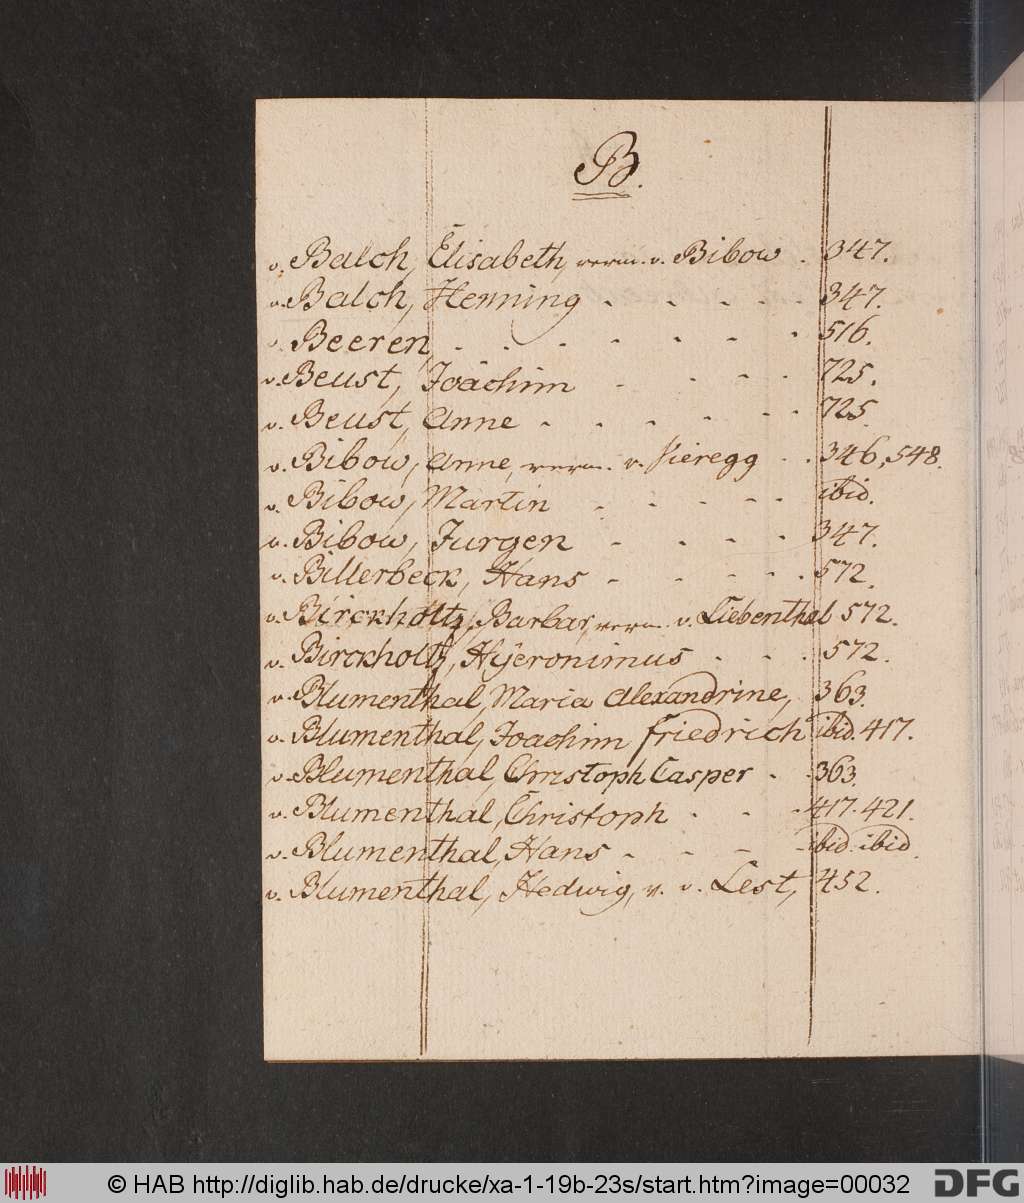 B.
v. Balch, Elisabeth, verm. v. Bibow . 347.
v. Balch, Henning . . . . . 347.
v. Beeren, . . . . . . . 516.
v. Beust, Joachim - - - - 725.
v. Beust, Anne - - - - - - 725.
v. Bibow, Anne, verm. v. Vieregg . . 346, 548.
v. Bibow, Martin - - - - - ibid.
v. Bibow, Jurgen - - - - 347.
v. Billerbeck, Hans - - - - . 572.
v. Birckholtz, Barbar, verm. v. Liebenthal 572.
v. Birckholtz, Hÿeronimus . . . 572.
v. Blumenthal, Maria Alexandrine, 363.
v. Blumenthal, Joachim Friedrich ibid. 417.
v. Blumenthal, Christoph Casper . . 363.
v. Blumenthal, Christoph . . . 417. 421.
v. Blumenthal, Hans - - - - ibid. ibid.
v. Blumenthal, Hedwig, v. v. Lest, 452.
© HAB http://diglib.hab.de/drucke/xa-1-19b-23s/start.htm?image=00032
DFG